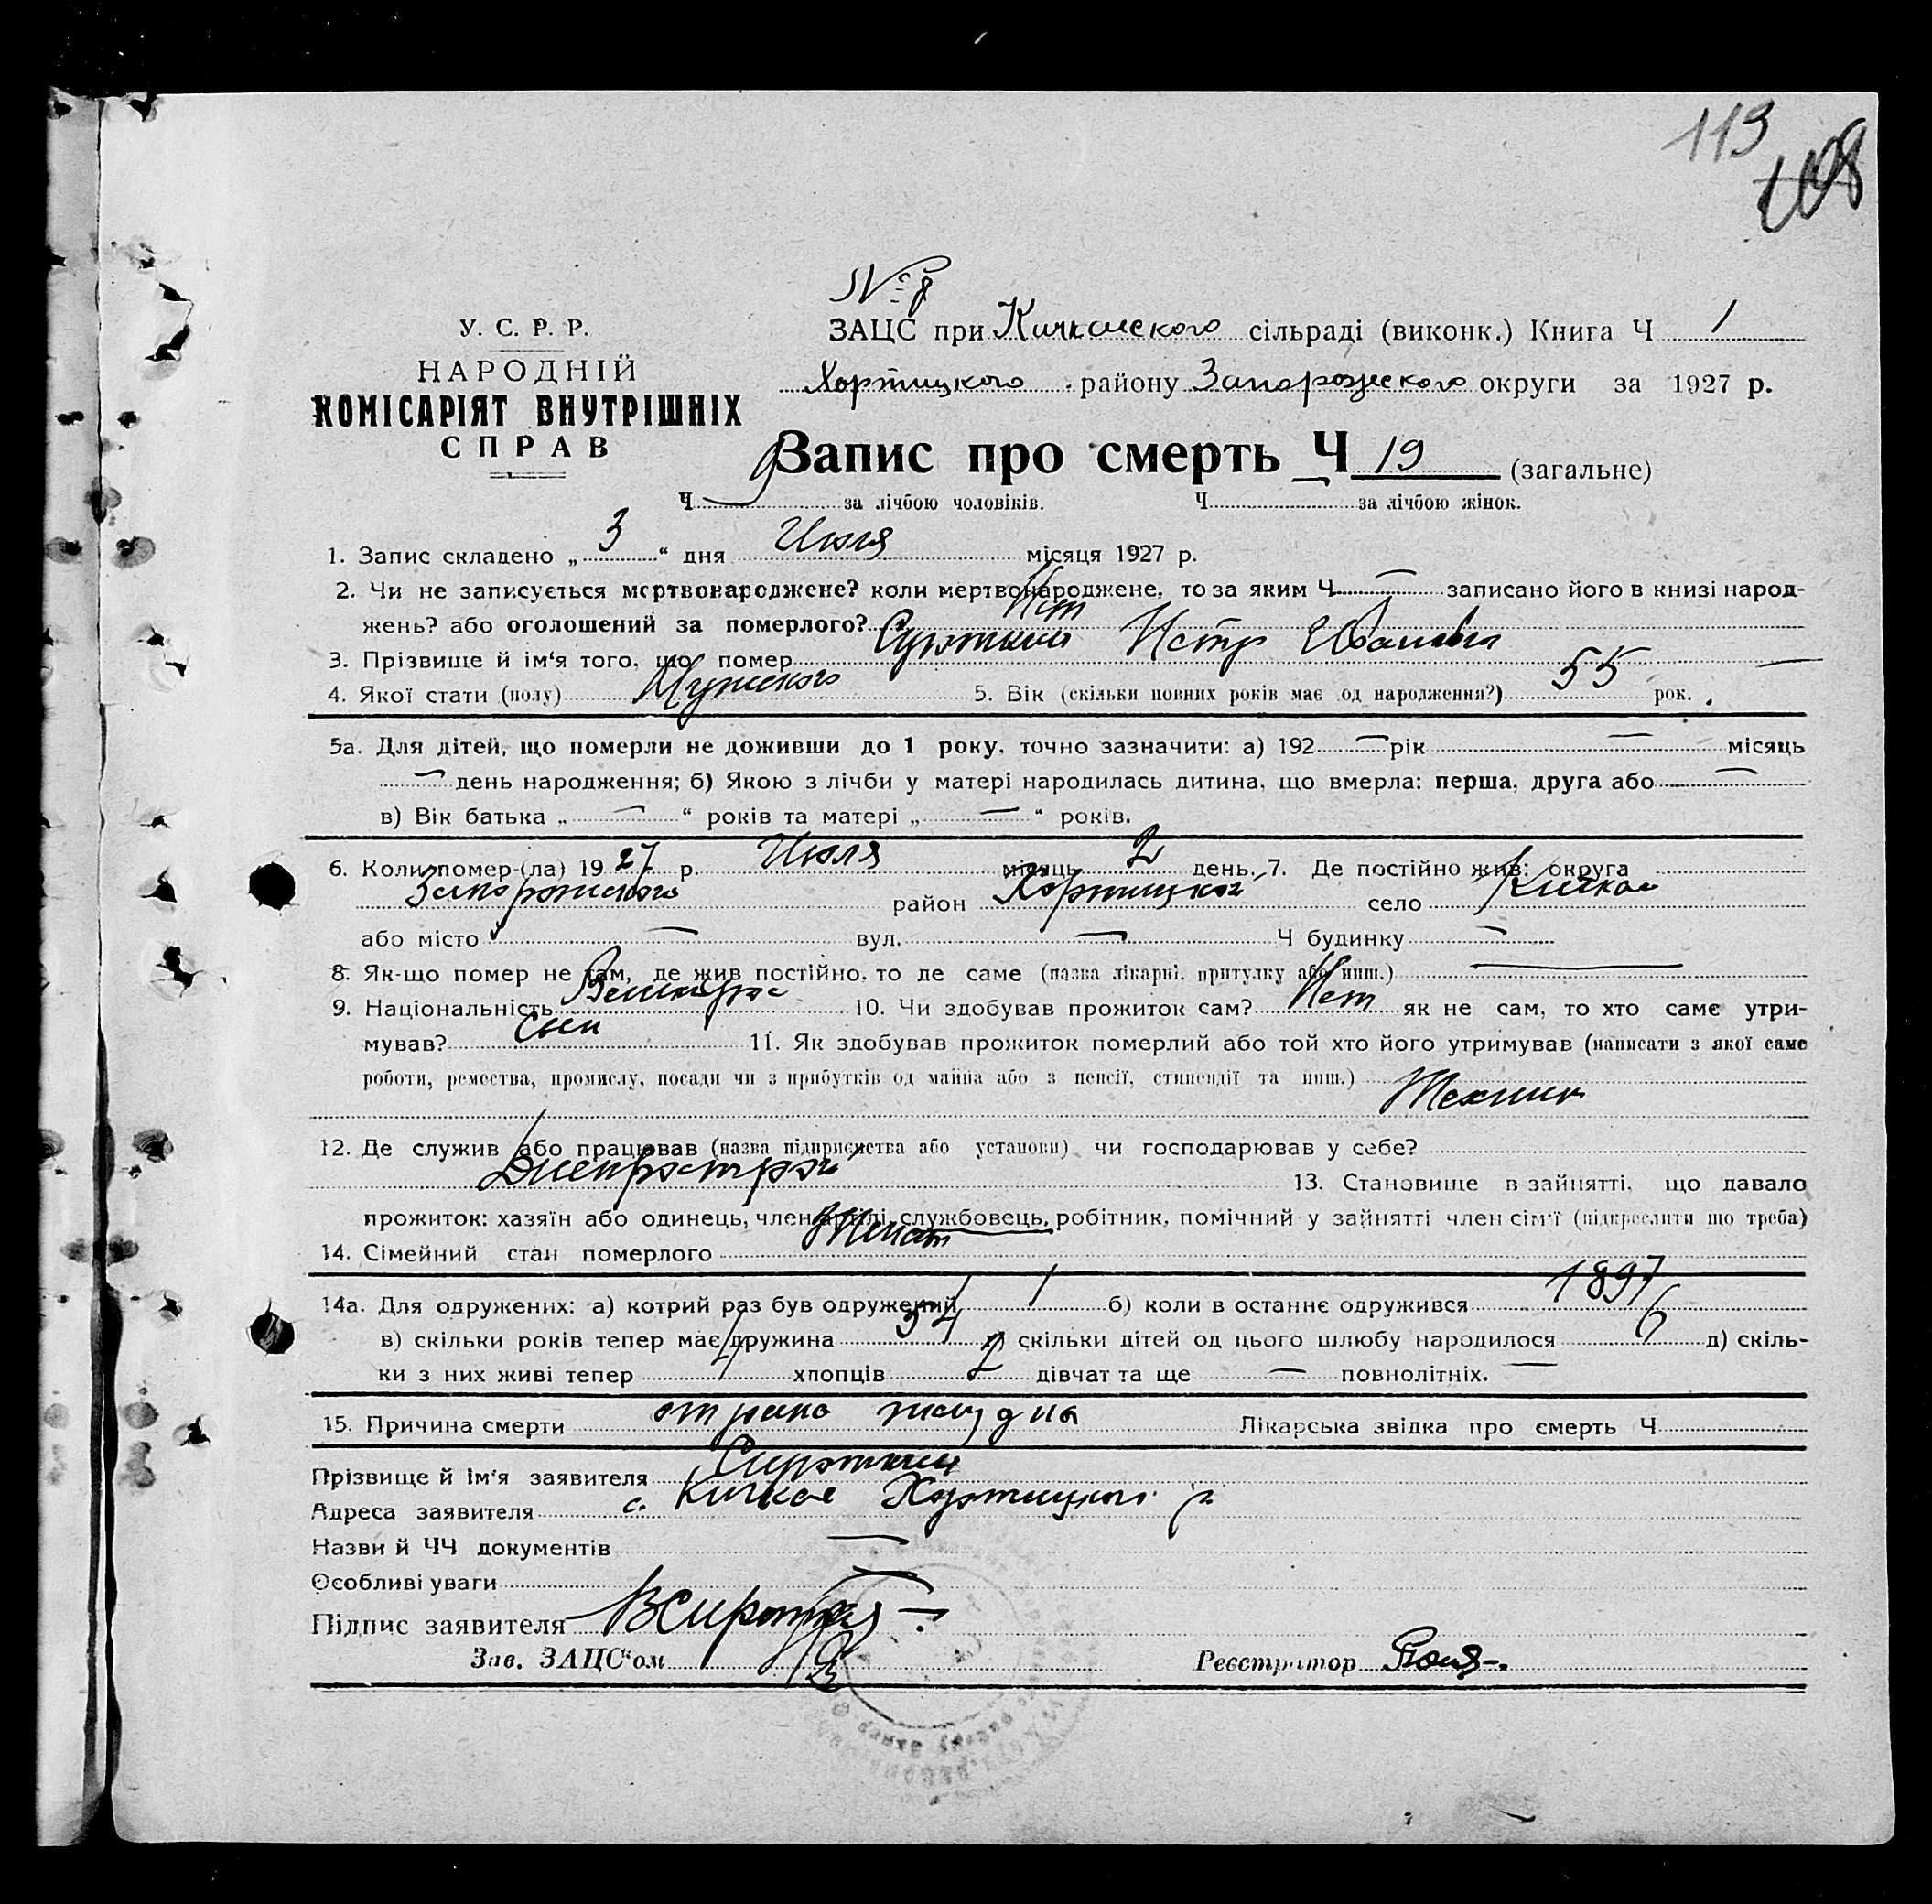 113
108
№ 8
У. С. Р. Р.
НАРОДНІЙ
КОМІСАРІЯТ ВНУТРІШНІХ
СПРАВ
ЗАЦС при Кичкасского сільраді (виконк.) Книга Ч 1
Хортицкого району Запорожского округи за 1927 р.
Запис про смерть Ч 19 (загальне)
Ч 9 за лічбою чоловіків. Ч за лічбою жінок.
1. Запис складено „ 3 “ дня Июля місяця 1927 р.
2. Чи не записується мертвонароджене? коли мертвонароджене, то за яким Ч — записано його в книзі народ-
жень? або оголошений за померлого? Нет
3. Прізвище й ім‘я того, що помер Петр Иванович —
4. Якої стати (полу) Мужского 5. Вік (скільки повних років має од народження?) 55 рок.
5а. Для дітей, що померли не доживши до 1 року, точно зазначити: а) 192 — рік — місяць
— день народження; б) Якою з лічби у матері народилась дитина, що вмерла: перша, друга або —
в) Вік батька „ — “ років та матері „ — “ років.
6. Коли помер-(ла) 1927 р. Июля місяць 2 день. 7. Де постійно жив: округа
Запорожского район Хортицкой село Кичкас
або місто — вул. — Ч будинку —
8. Як-що помер не там, де жив постійно, то де саме (назва лікарні, притулку або инш.) —
9. Національність Великорос 10. Чи здобував прожиток сам? Нет як не сам, то хто саме утри-
мував? Сын 11. Як здобував прожиток померлий або той хто його утримував (написати з якої саме
роботи, ремества, промислу, посади чи з прибутків од майна або з пенсії, стипендії та инш.) Техник
12. Де служив або працював (назва підприємства або установи) чи господарював у себе?
Днепрострой 13. Становище в зайнятті, що давало
прожиток: хазяїн або одинець, член артілі, службовець, робітник, помічний у зайнятті член сім‘ї (підкреслити що треба)
14. Сімейний стан померлого Женат
14а. Для одружених: а) котрий раз був одружений 1 б) коли в останнє одружився 1897
в) скільки років тепер має дружина 54 г) скільки дітей од цього шлюбу народилося 6 д) скіль-
ки з них живі тепер 4 хлопців 2 дівчат та ще — повнолітніх. —
15. Причина смерти от рака желудка Лікарська звідка про смерть Ч
Прізвище й ім‘я заявителя
Адреса заявителя с. Кичкас Хортицкого р.
Назви й ЧЧ документів —
Особливі уваги —
Підпис заявителя
Зав. ЗАЦС‘ом Реєстратор